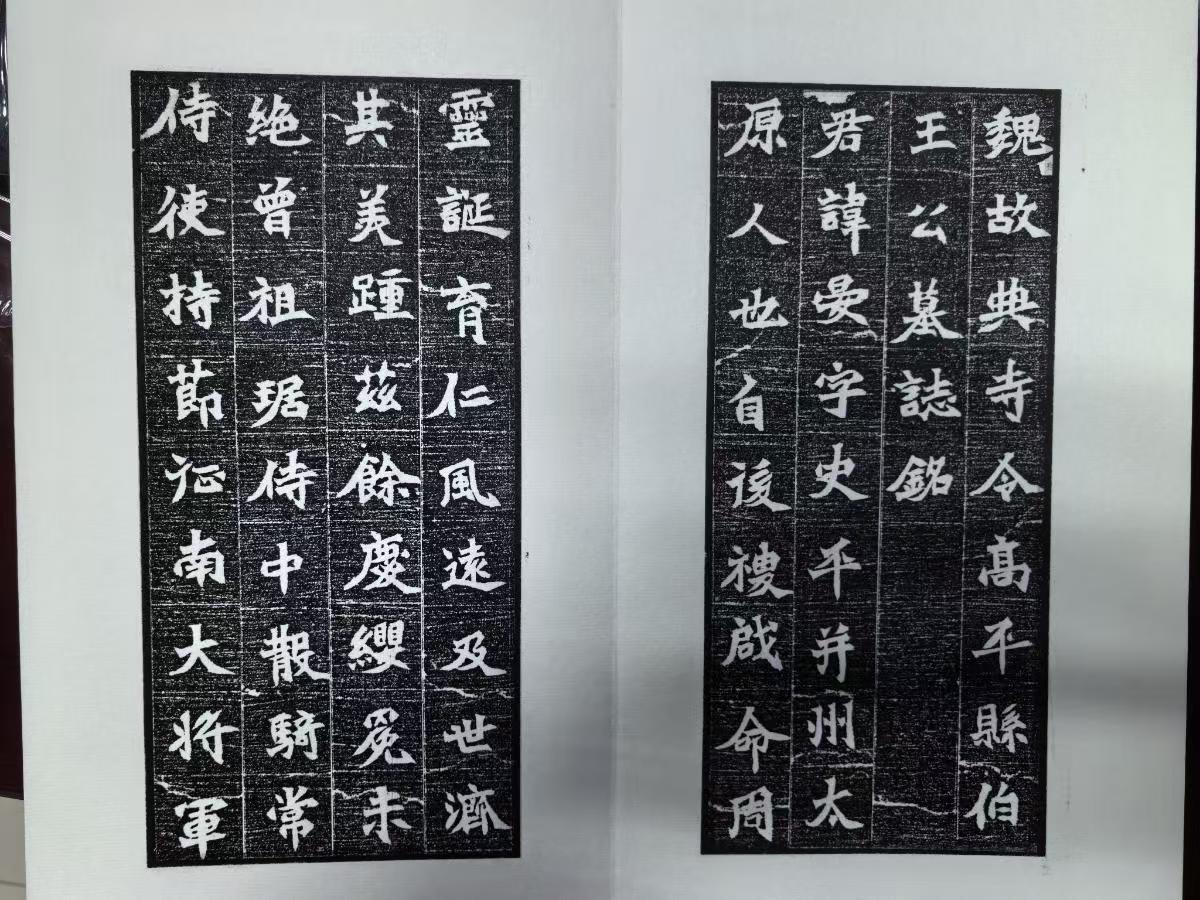 魏故典寺令高平縣伯
王公墓誌銘
君諱曼字史平并州太
原人也自後禝啟命周
靈誕育仁風遠及世濟
其美踵茲餘慶纓冕未
絶曾祖琚侍中散騎常
侍使持節征南大將軍